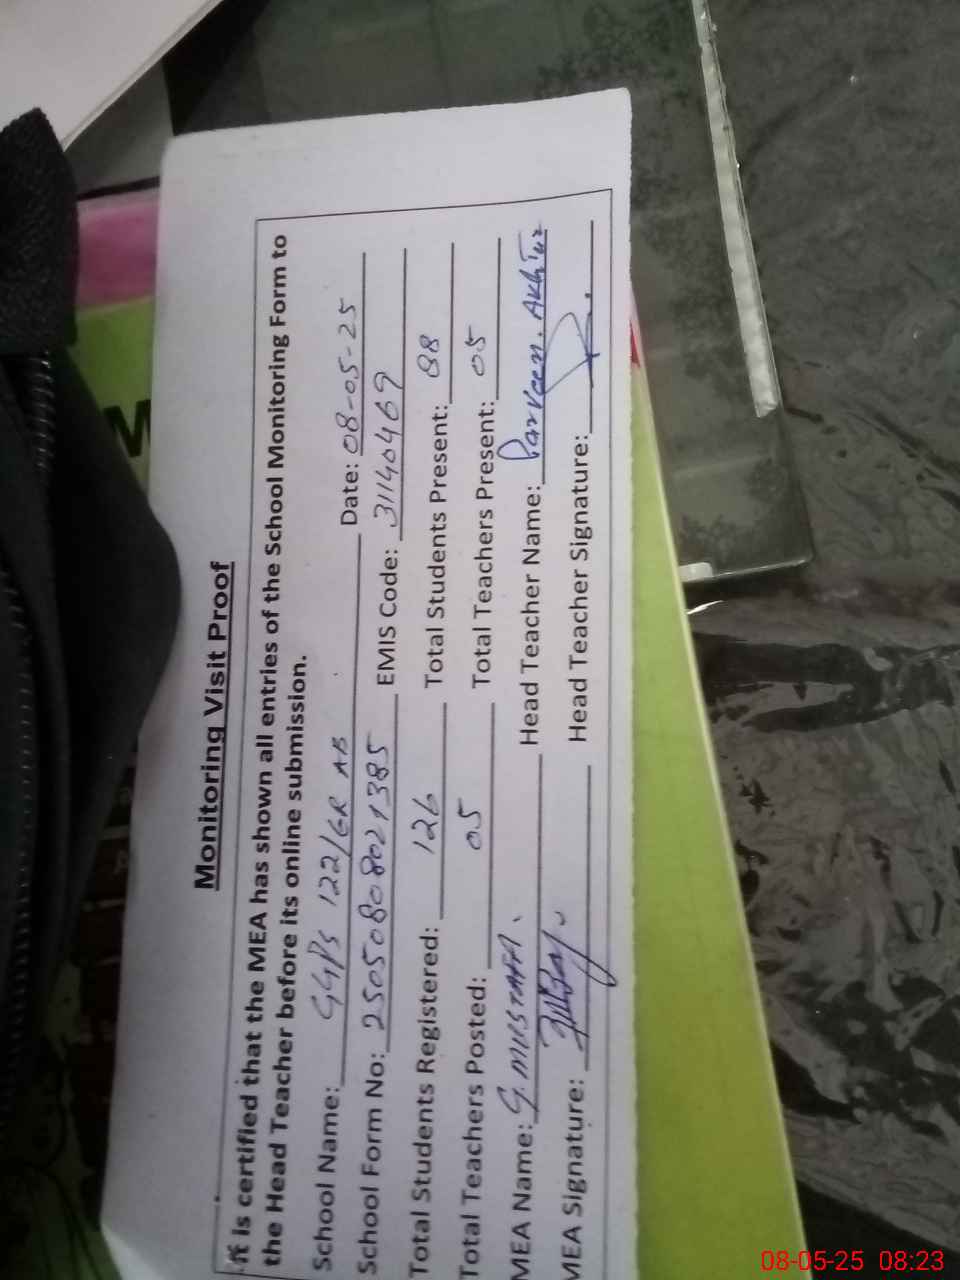 Monitoring Visit Proof
It is certified that the MEA has shown all entries of the School Monitoring Form to
the Head Teacher before its online submission.
School Name: GGPS 122/GR AB Date: 08-05-25
School Form No: 25050808021385 EMIS Code: 31140469
Total Students Registered: 126 Total Students Present: 88
Total Teachers Posted: 05 Total Teachers Present: 05
MEA Name: G. MUSTAFA. Head Teacher Name: Parveen. Akhtar
MEA Signature: Head Teacher Signature:
M
08-05-25 08:23